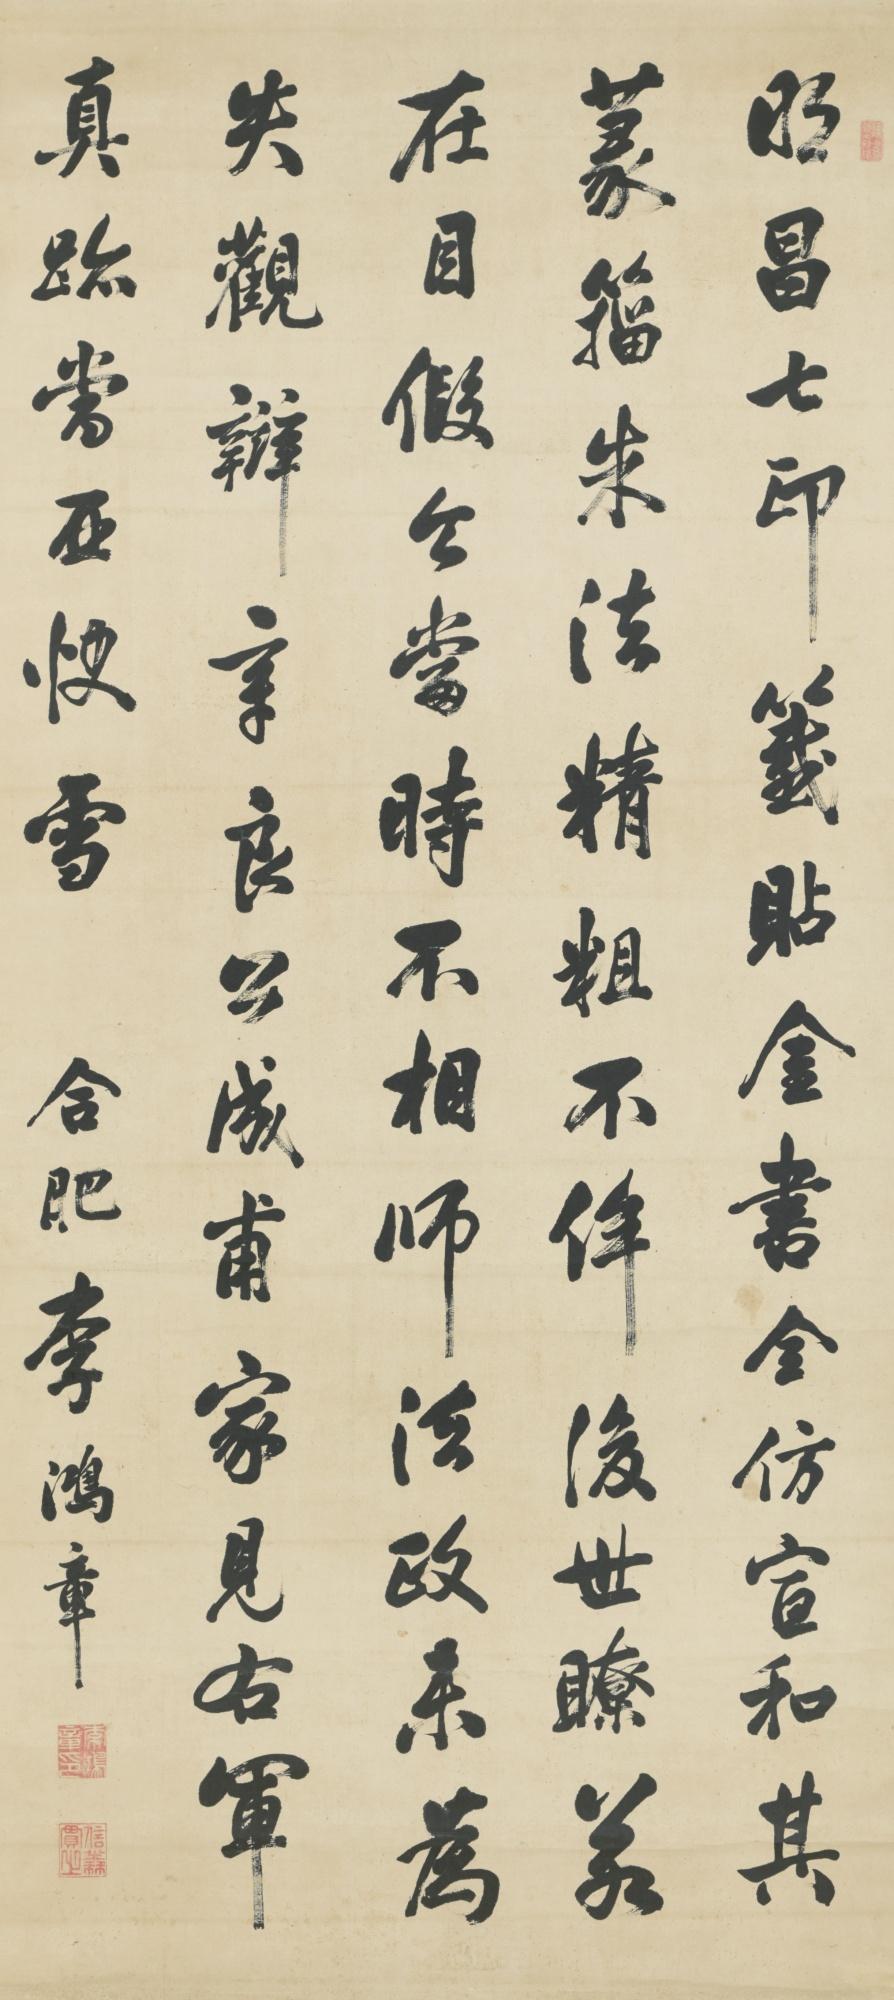 明昌七印籤貼金書全仿宣和其
篆籀朱法精粗不侔後世瞭若
在目假令當時不相師法政未為
失觀辯章良公成甫家見右軍
真跡當亞快雪
合肥李鴻章